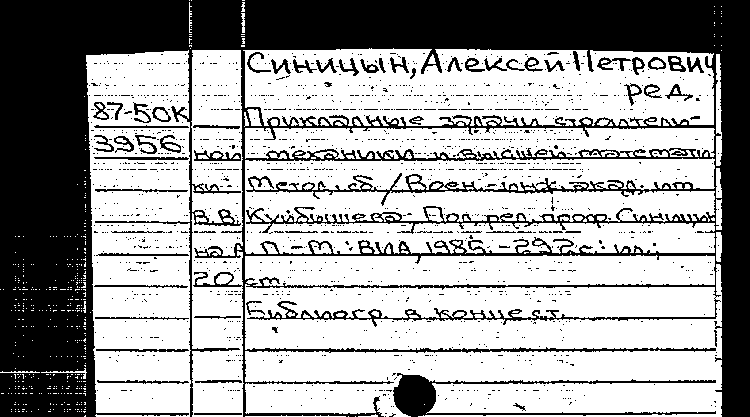 Синицын, Алексей Петрович
ред.
87-50К Прикладные задачи строитель-
3956 ной механики и высшей математи
ки: Метод. сб. / Воен.-инж. акад. им.
В.В. Куйбышева; Под ред. проф. Синицы
на А.П. - М.: ВИА, 1985. - 292 с.: ил.;
20 см.
Библиогр. в конце ст.